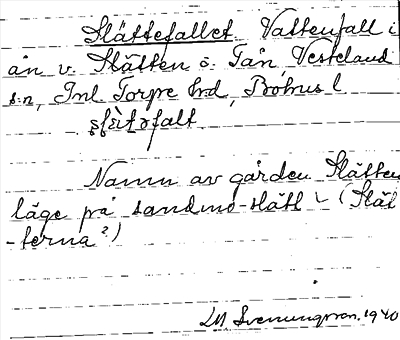 Slättefallet Vattenfall i
ån v. Slätten ö. Tån Vesteland
s:n, Inl Torpe hrd, Bohus l
Namn av gården Slätten
läge på sandmo-slätt (Slät
-terna?)
LM Svenungsson. 1940